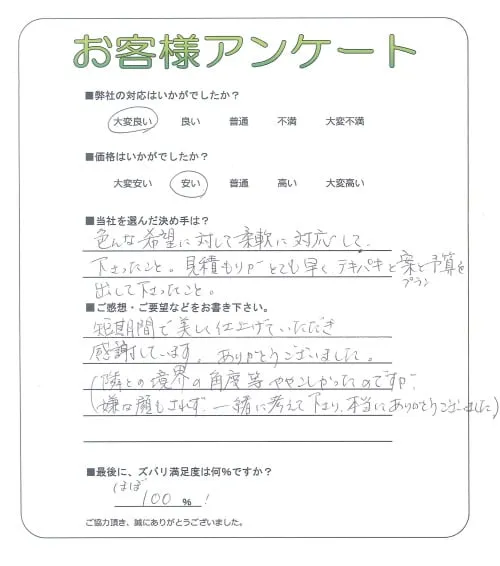 お客様アンケート
■弊社の対応はいかがでしたか?
大変良い 良い 普通 不満 大変不満
■価格はいかがでしたか?
大変安い 安い 普通 高い 大変高い
■当社を選んだ決め手は?
色んな希望に対して柔軟に対応して、
下さったこと。見積もりがとても早くテキパキと案と予算を
プラン
出して下さったこと。
■ご感想・ご要望などをお書き下さい。
短期間で美しく仕上げていただき
感謝しています。ありがとうございました。
(隣との境界の角度等ややこしかったのですが、
嫌な顔もされず、一緒に考えて下さり、本当にありがとうございました)
■最後に、ズバリ満足度は何%ですか?
ほぼ
100 % !
ご協力頂き、誠にありがとうございました。